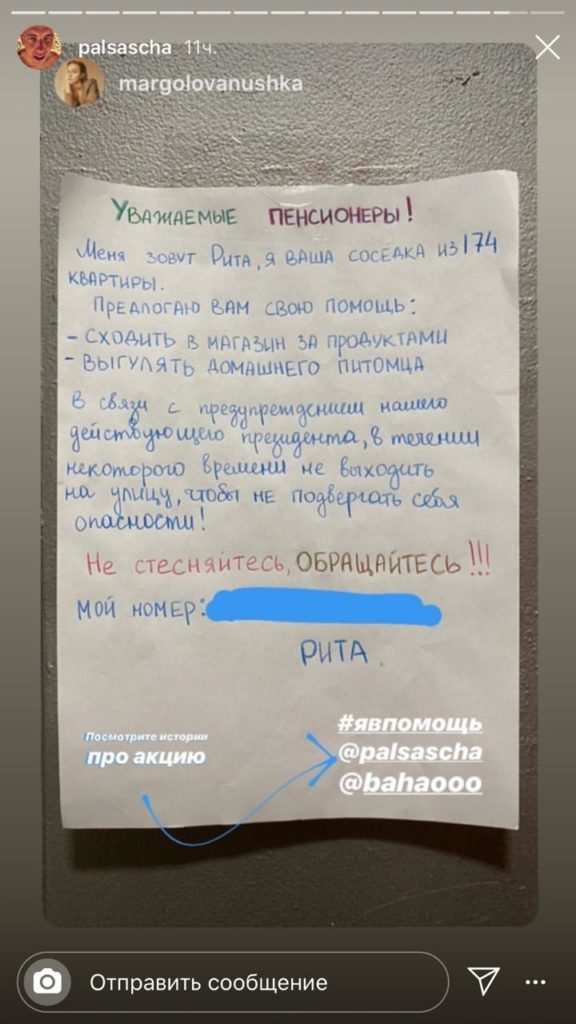 palsascha 11ч.
margolovanushka
Уважаемые пенсионеры!
Меня зовут Рита, я ваша соседка из 174
квартиры.
Предлогаю вам свою помощь:
- сходить в магазин за продуктами
- выгулять домашнего питомца
В связи с предупреждением нашего
действующего президента, в течении
некоторого времени не выходить
на улицу, чтобы не подвергать себя
опасности!
Не стесняйтесь, ОБРАЩАЙТЕСЬ!!!
Мой номер:
Рита.
#явпомощь
Посмотрите истории
про акцию
@palsascha
@bahaooo
Отправить сообщение